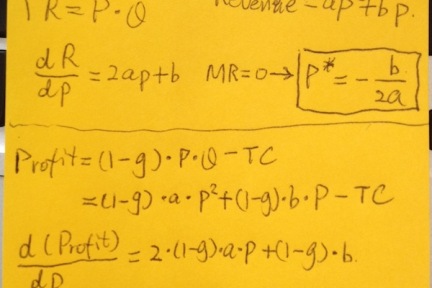 TR = P·Q Revenue = ap²+bp.
dR/dp = 2ap+b MR=0→ P* = - b/2a
Profit = (1-g)·P·Q - TC
= (1-g)·a·P²+(1-g)·b·P - TC
d(Profit)/dP = 2·(1-g)·a·P+(1-g)·b.